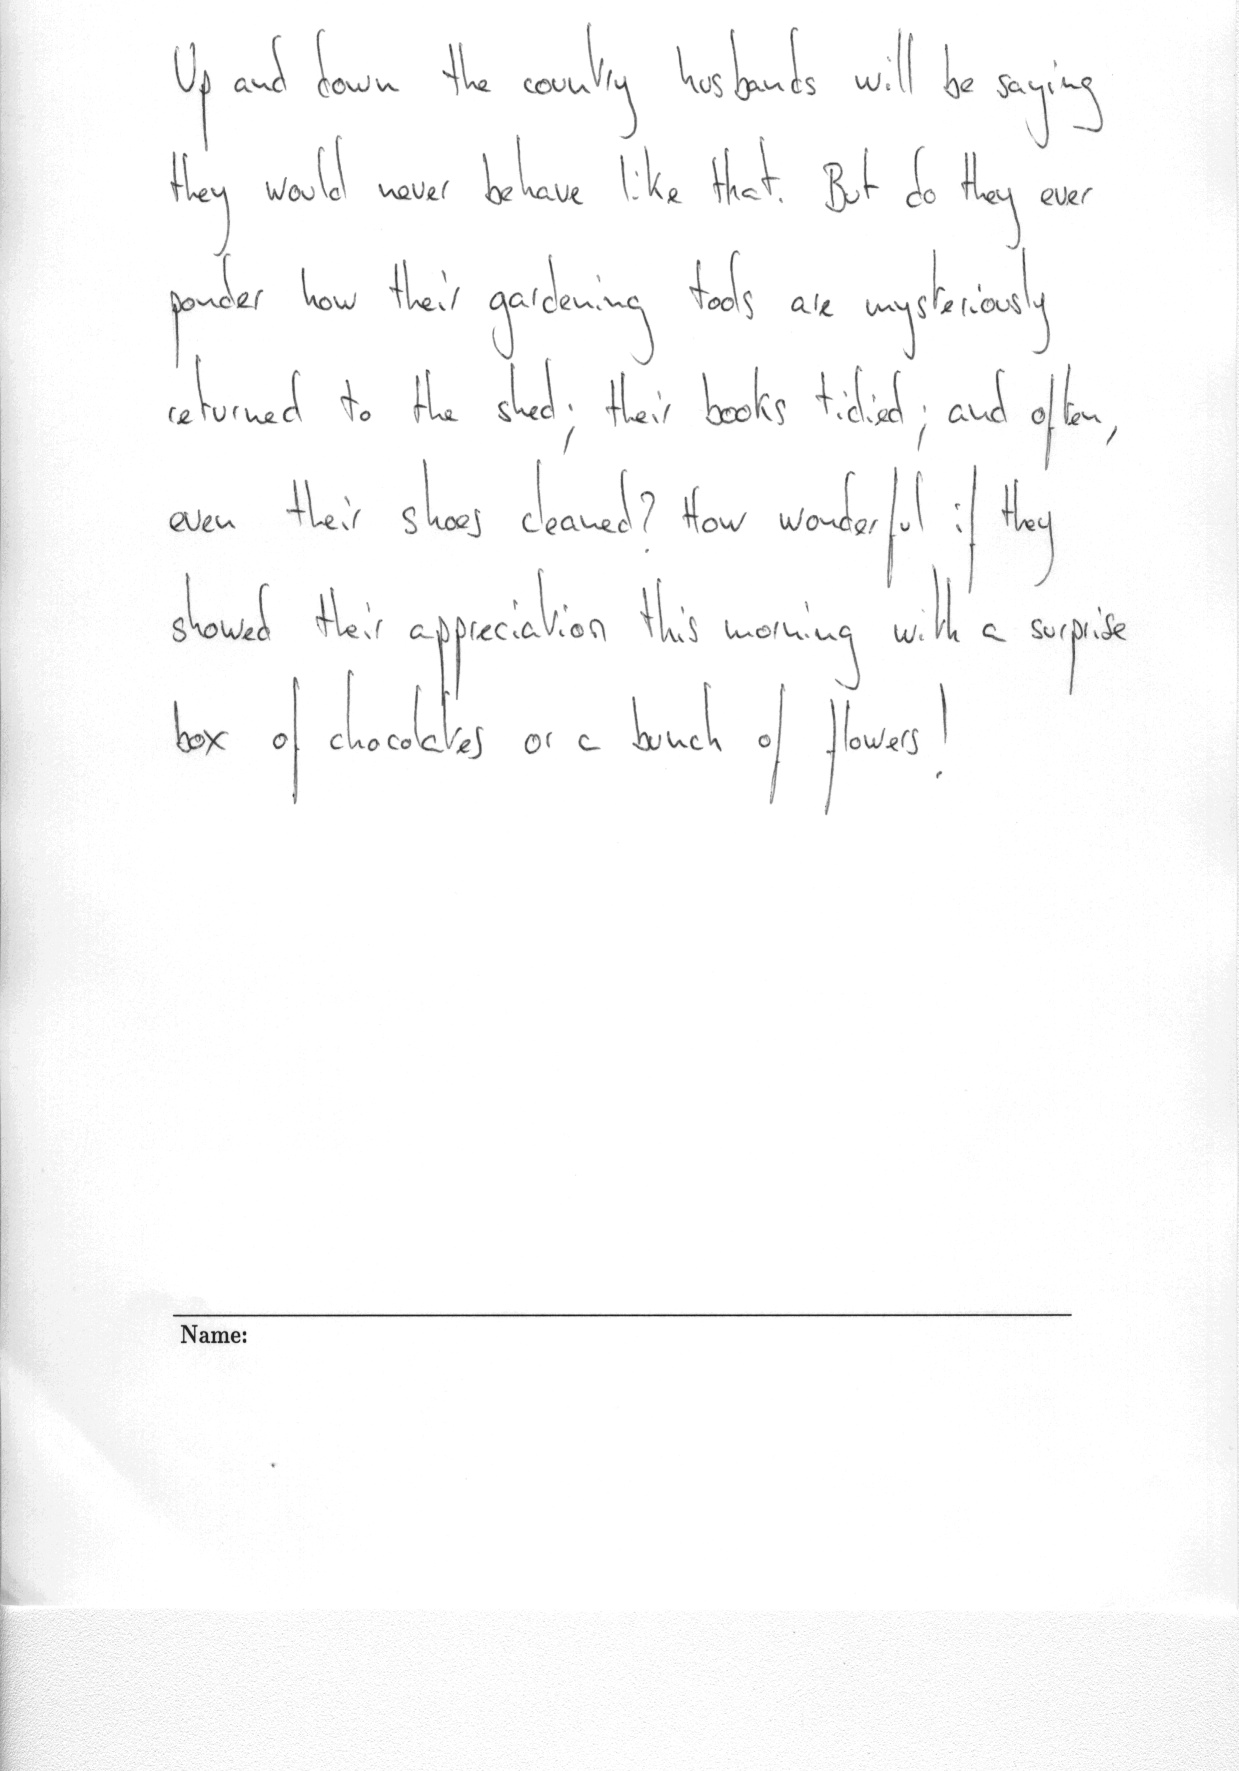 Up and down the country husbands will be saying
they would never behave like that. But do they ever
ponder how their gardening tools are mysteriously
returned to the shed; their books tidied; and often,
even their shoes cleaned? How wonderful if they
showed their appreciation this morning with a surprise
box of chocolates or a bunch of flowers!
Name: